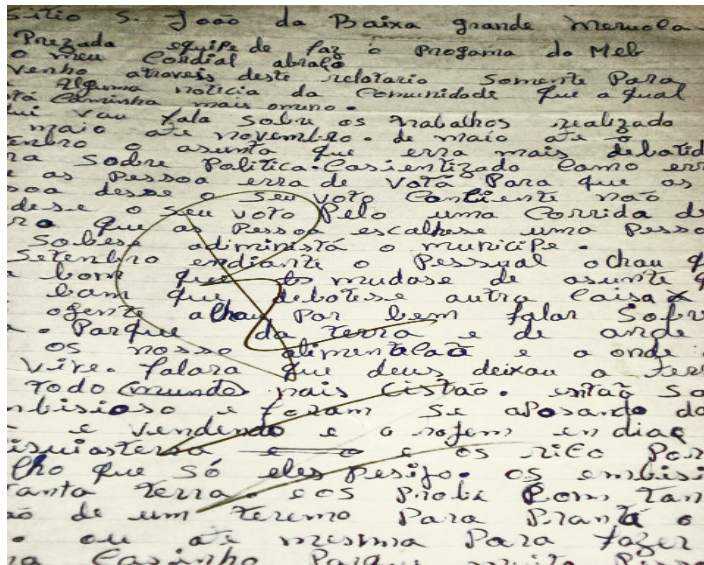 Sitio S. João da Baixa grande Meruola
Prezada equipe de faz o Progama do Meb
o meu Cordial abraço
venho atraveis deste relatario Somente Para
Alguma noticia da Comunidade que a qual
tá Caminha mais omeno.
ui vau fala Sobre os trabalhos realizado
maio até novembro. de maio até
enbro o asunta que erra mais debatid
ra Sobre Politica. Casientizado Camo err
e as Pessoa erra de Vota Para que as
soa desse o Seu voto Conliente não
dese o Seu voto Pelo uma Corrida de
ro que as Pessoa escalhese uma Pesso
Sobese adiministá o municipe.
Setenbro endiante o Pessual achau q
a bom que os mudase de asunte q
bam que debatesse autra Caisa
agente achau Por bem falar Sobr
. Parque da terra e de ande
os nosso alimentacaã e a onde
Vive. falara que deus deixau a ter
Todo mundo mais Cistão. então So
nbisioso e foram Se aPosando da
e vendendo e a hojem en diae
e os rico Por
lho que Só eles
tanta terra. e os Probe bom tan
ão de um teremo Para Prantá o
o ou até mesma Para fazer
ra Casinha Parque